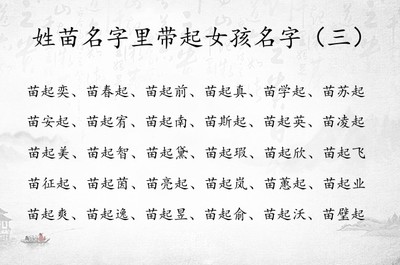 姓苗名字里带起女孩名字（三）
苗起奕、苗春起、苗起前、苗起真、苗学起、苗苏起
苗安起、苗起宥、苗起南、苗斯起、苗起英、苗凌起
苗起美、苗起智、苗起黛、苗起瑕、苗起欣、苗起飞
苗征起、苗起茵、苗亮起、苗起岚、苗蕙起、苗起业
苗起爽、苗起逸、苗起昱、苗起俞、苗起沃、苗璧起